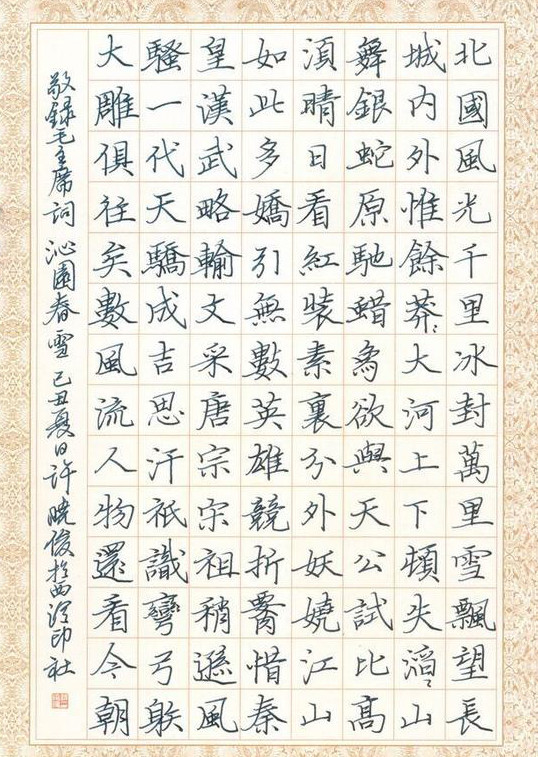 北國風光千里冰封萬里雪飄望長
城內外惟餘莽〻大河上下頓失滔〻山
舞銀蛇原馳蜡象欲與天公試比高
湏晴日看紅裝素裹分外妖嬈江山
如此多嬌引無數英雄競折腰惜秦
皇漢武略輸文采唐宗宋祖稍遜風
騷一代天驕成吉思汗祇識彎弓射
大雕俱往矣數風流人物還看今朝
敬錄毛主席詞 沁園春 雪 己丑夏日許曉俊於西泠印社